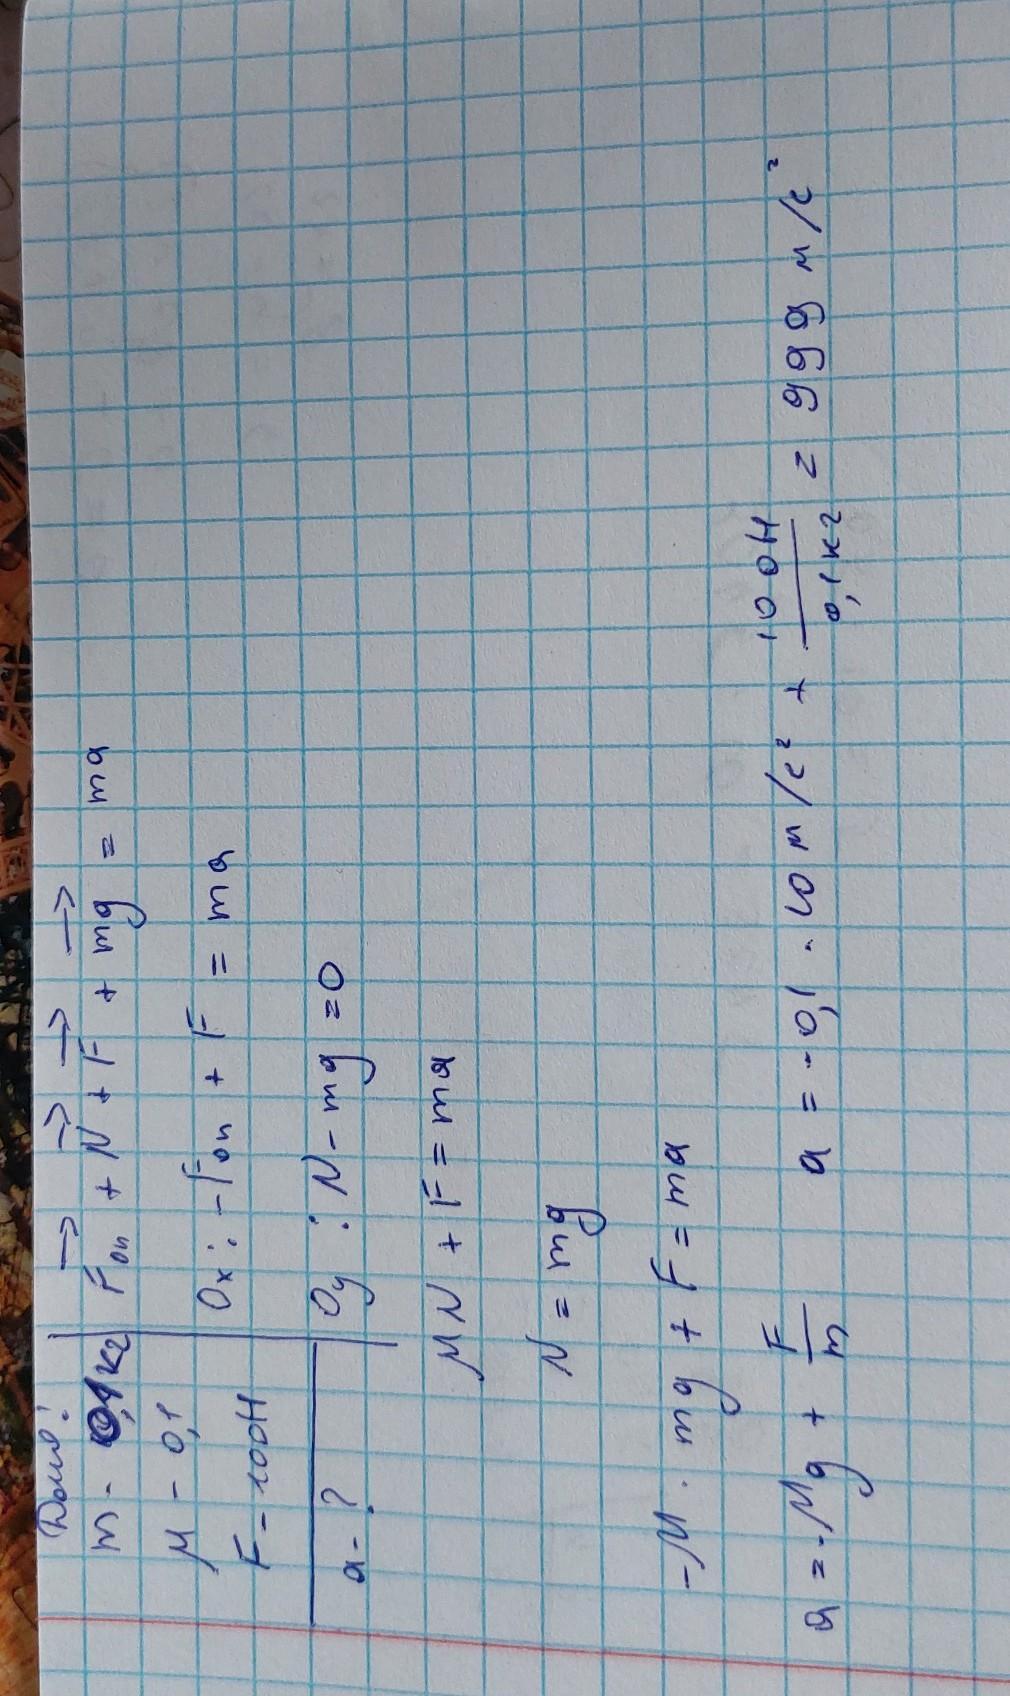 Дано:
m - 0,1кг
μ - 0,1
F - 100Н
a - ?
→ → → →
Fоп + N + F + mg = ma
Ox: -Fоп + F = ma
Oy: N - mg = 0
μN + F = ma
N = mg
-μ · mg + F = ma
a = -μg + F/m a = -0,1 · 10 м/с² + 100Н/0,1кг = 999 м/с²